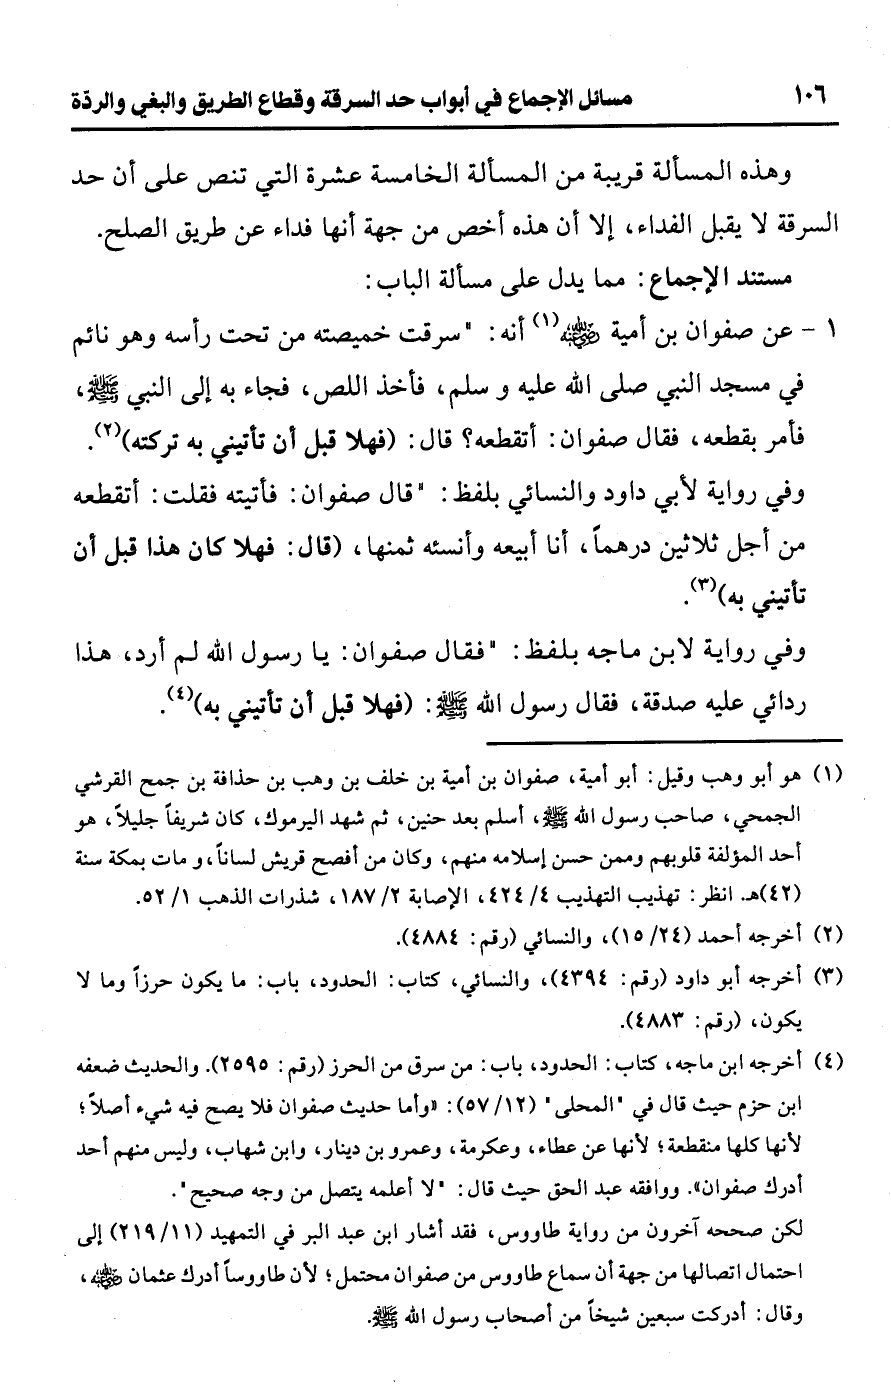 ١٠٦ مسائل الإجماع في أبواب حد السرقة وقطاع الطريق والبغي والردّة
وهذه المسألة قريبة من المسألة الخامسة عشرة التي تنص على أن حد
السرقة لا يقبل الفداء، إلا أن هذه أخص من جهة أنها فداء عن طريق الصلح.
مستند الإجماع: مما يدل على مسألة الباب:
١ - عن صفوان بن أمية رضي الله عنه(١) أنه: "سرقت خميصته من تحت رأسه وهو نائم
في مسجد النبي صلى الله عليه و سلم، فأخذ اللص، فجاء به إلى النبي ﷺ،
فأمر بقطعه، فقال صفوان: أتقطعه؟ قال: (فهلا قبل أن تأتيني به تركته)(٢).
وفي رواية لأبي داود والنسائي بلفظ: "قال صفوان: فأتيته فقلت: أتقطعه
من أجل ثلاثين درهماً، أنا أبيعه وأنسئه ثمنها، (قال: فهلا كان هذا قبل أن
تأتيني به)(٣).
وفي رواية لابن ماجه بلفظ: "فقال صفوان: يا رسول الله لم أرد، هذا
ردائي عليه صدقة، فقال رسول الله ﷺ: (فهلا قبل أن تأتيني به)(٤).
(١) هو أبو وهب وقيل: أبو أمية، صفوان بن أمية بن خلف بن وهب بن حذافة بن جمح القرشي
الجمحي، صاحب رسول الله ﷺ، أسلم بعد حنين، ثم شهد اليرموك، كان شريفاً جليلاً، هو
أحد المؤلفة قلوبهم وممن حسن إسلامه منهم، وكان من أفصح قريش لساناً،و مات بمكة سنة
(٤٢)هـ. انظر: تهذيب التهذيب ٤/ ٤٢٤، الإصابة ٢/ ١٨٧، شذرات الذهب ١/ ٥٢.
(٢) أخرجه أحمد (٢٤/ ١٥)، والنسائي (رقم: ٤٨٨٤).
(٣) أخرجه أبو داود (رقم: ٤٣٩٤)، والنسائي، كتاب: الحدود، باب: ما يكون حرزاً وما لا
يكون، (رقم: ٤٨٨٣).
(٤) أخرجه ابن ماجه، كتاب: الحدود، باب: من سرق من الحرز (رقم: ٢٥٩٥). والحديث ضعفه
ابن حزم حيث قال في "المحلى" (١٢/ ٥٧): «وأما حديث صفوان فلا يصح فيه شيء أصلاً؛
لأنها كلها منقطعة؛ لأنها عن عطاء، وعكرمة، وعمرو بن دينار، وابن شهاب، وليس منهم أحد
أدرك صفوان». ووافقه عبد الحق حيث قال: "لا أعلمه يتصل من وجه صحيح".
لكن صححه آخرون من رواية طاووس، فقد أشار ابن عبد البر في التمهيد (١١/ ٢١٩) إلى
احتمال اتصالها من جهة أن سماع طاووس من صفوان محتمل؛ لأن طاووساً أدرك عثمان رضي الله عنه،
وقال: أدركت سبعين شيخاً من أصحاب رسول الله ﷺ.